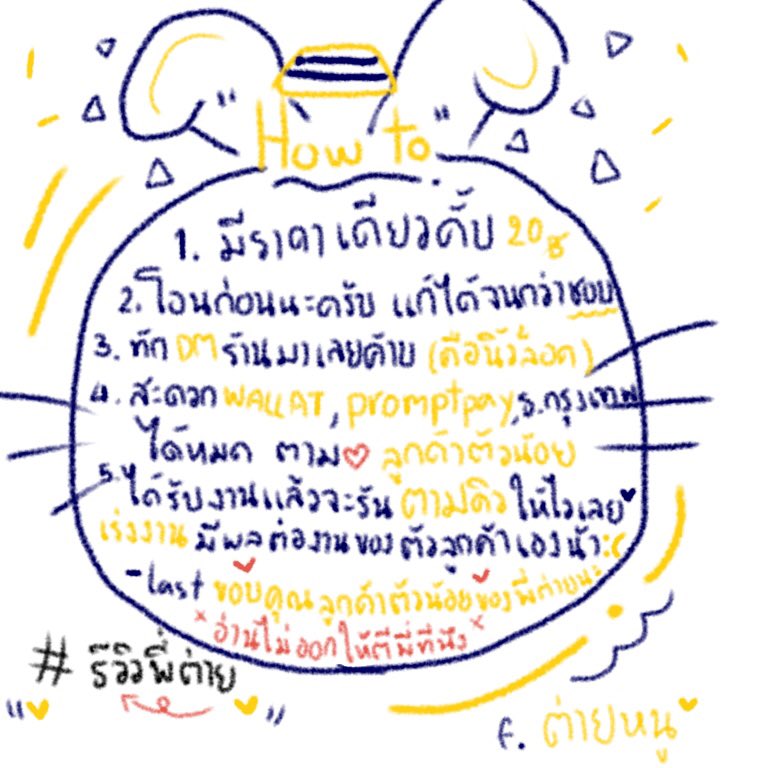 "How to"
1. มีราคาเดียวคั้บ 20฿
2. โอนก่อนนะครับ แก้ได้จนกว่าชอบ
3. ทัก DM ร้านมาเลยค้าบ (คือนิ้วล็อค)
4. สะดวก WALLAT, promptpay, ธ.กรุงเทพ
ได้หมด ตาม♡ ลูกค้าตัวน้อย
5. ได้รับงานแล้วจะรัน ตามคิว ให้ไวเลย
เร่งงาน มีผลต่องานของตัวลูกค้าเองน้า :(
- last ขอบคุณ ลูกค้าตัวน้อยของพี่ต่ายนะ
× อ่านไม่ออกให้ตีพี่ทีนึง ×
# รีวิวพี่ต่าย
f. ต่ายหนู